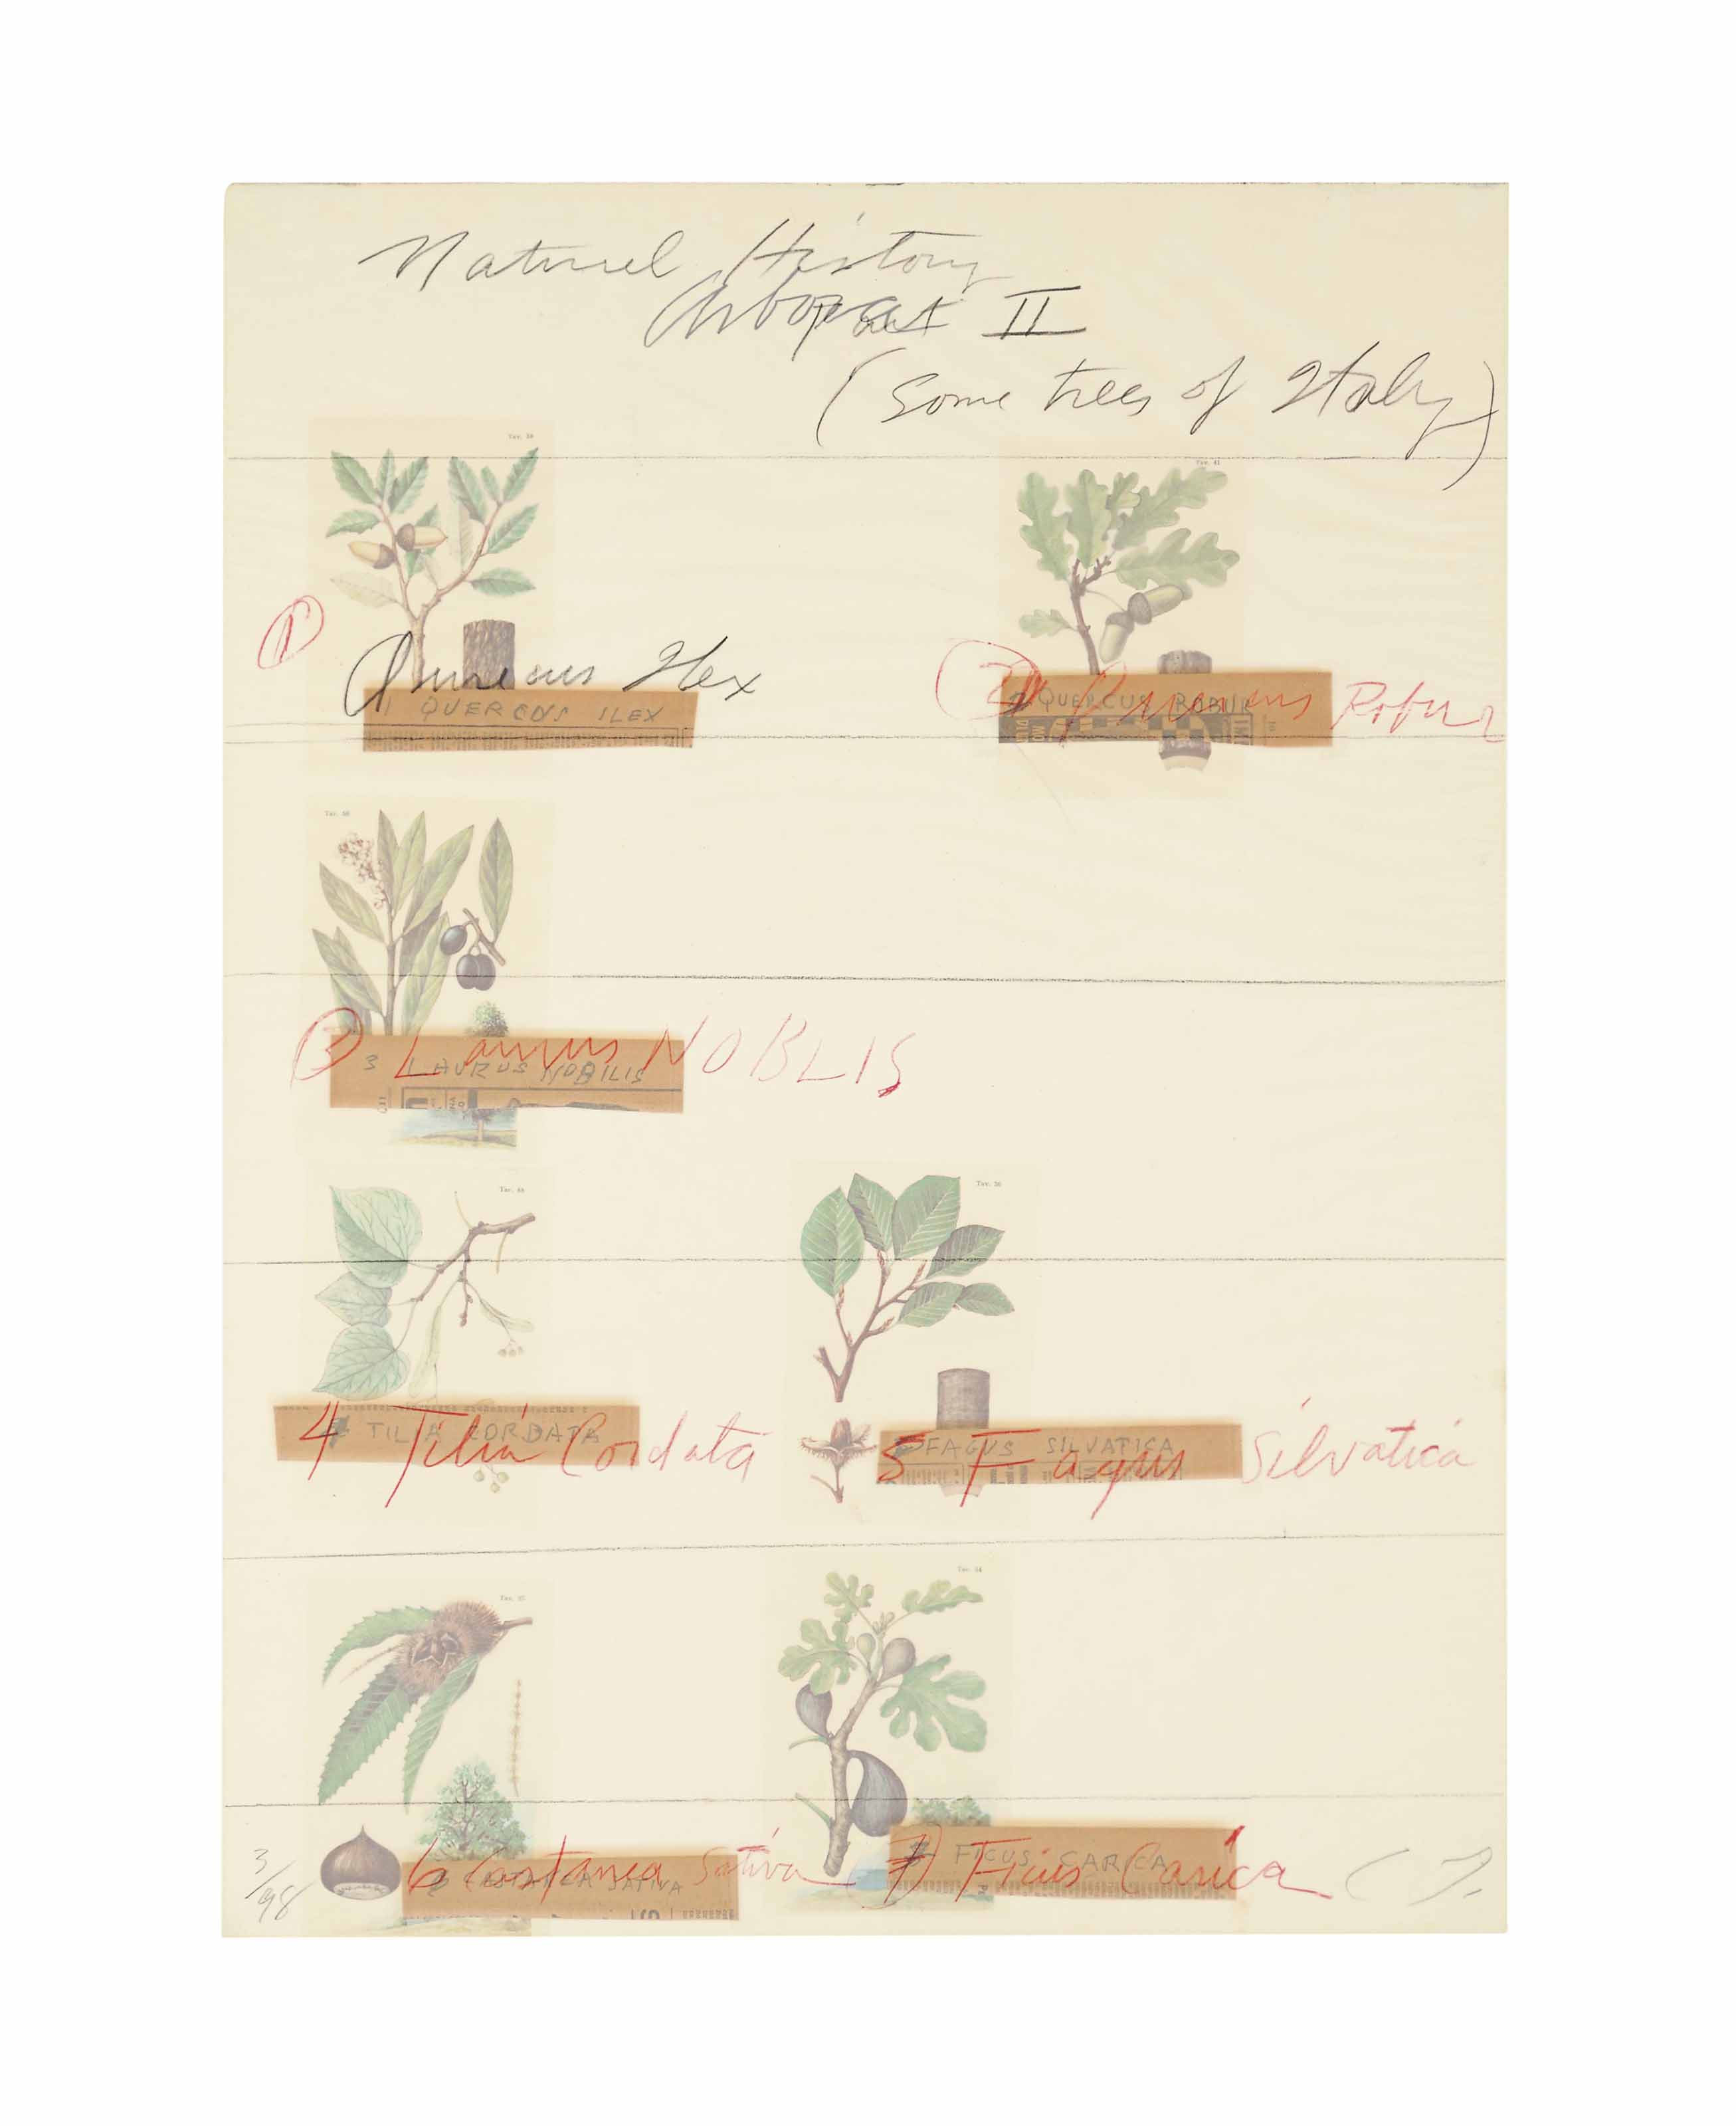 Natural History
Part II
(Some trees of Italy)
Tav. 41
1
Quercus Ilex
QUERCUS ILEX
2 Quercus Robur
QUERCUS ROBUR
3 Laurus NOBLIS
3 LAURUS NOBILIS
Tav. 36
4 Tilia Cordata
TILIA CORDATA
5 Fagus Silvatica
FAGUS SILVATICA
6 Castanea Sativa
CASTANEA SATIVA
7) Ficus Carica
FICUS CARICA
3/98